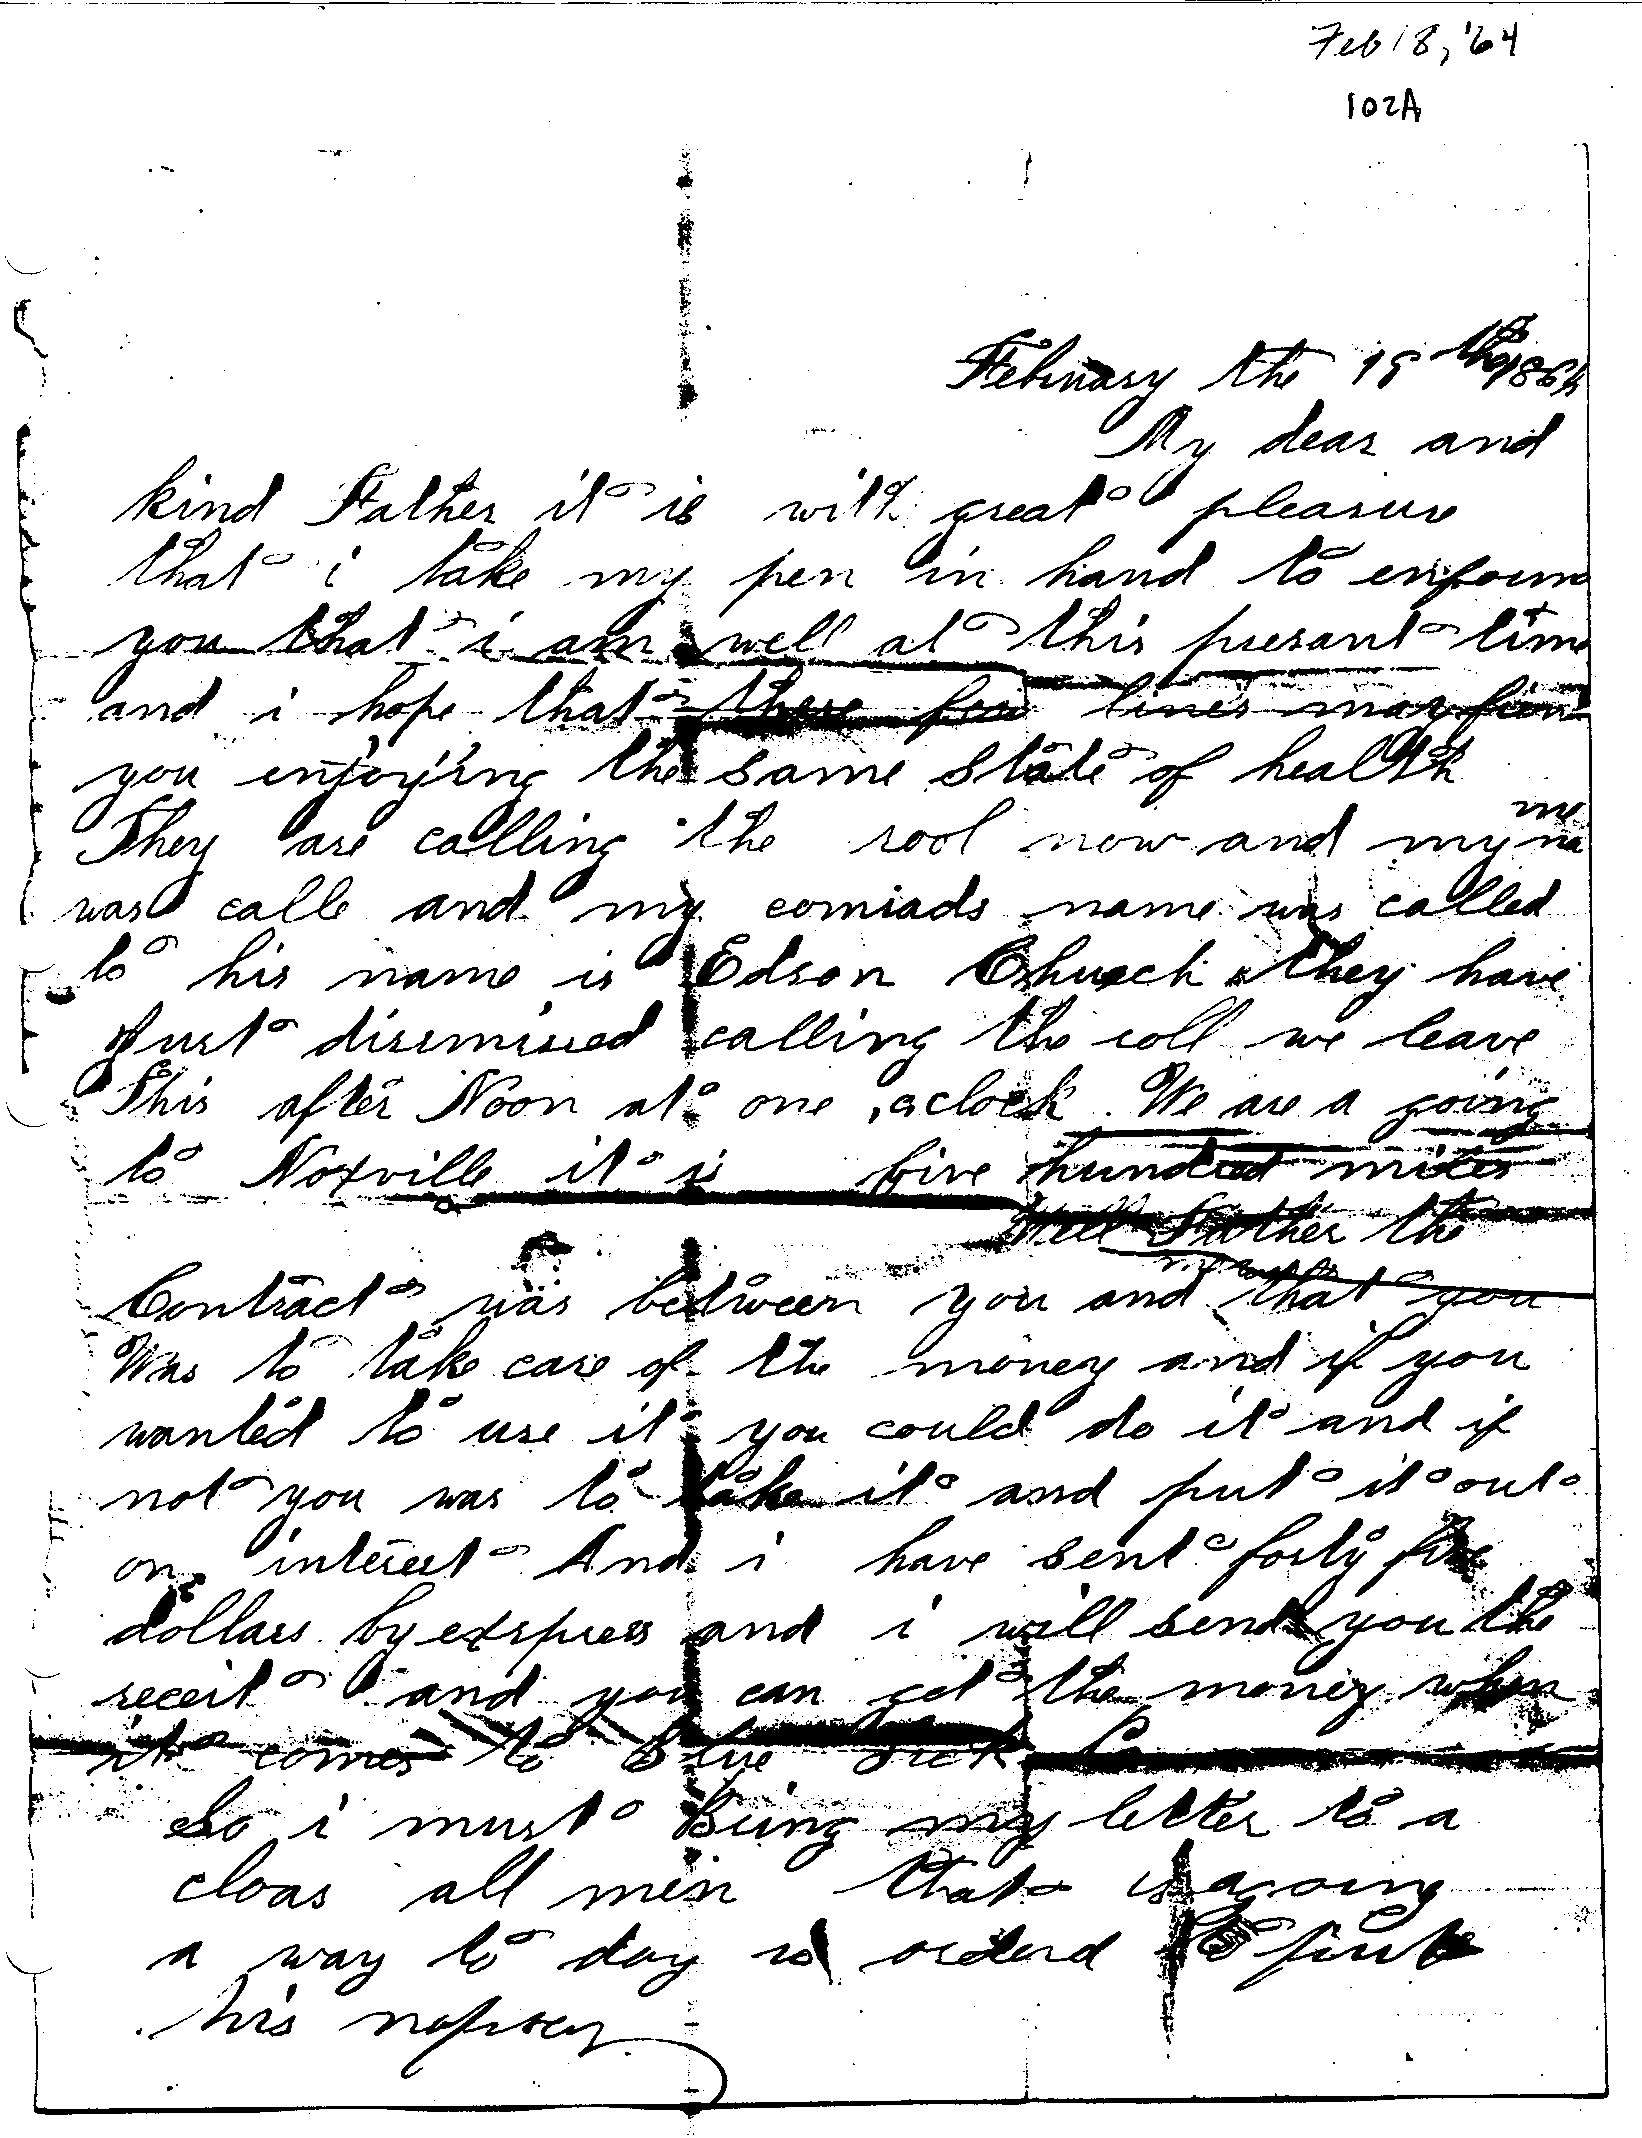 Feb 18, '64
102A
February the 18th 1864
My dear and
kind Father it is with great pleasure
that i take my pen in hand to enfourm
you that i am well at this presant time
and i hope that these few lines may fien
you enjoying the same state of health
They are calling the rool now and my name
was calle and my comrads name was called
to his name is Edson Church they have
just dismissed calling the roll we leave
This after Noon at one ,oclock We are a going
to Noxville it is five hundred miles
Well Father the
Contract was between you and that you
Was to take care of the money and if you
wanted to use it you could do it and if
not you was to take it and put it out
on interest And i have sent forty five
dollars by express and i will send you the
receit and you can get the money when
it comes to Blue
So i must bring my letter to a
cloas all men that is agoing
a way to day is orderd to
his napsey